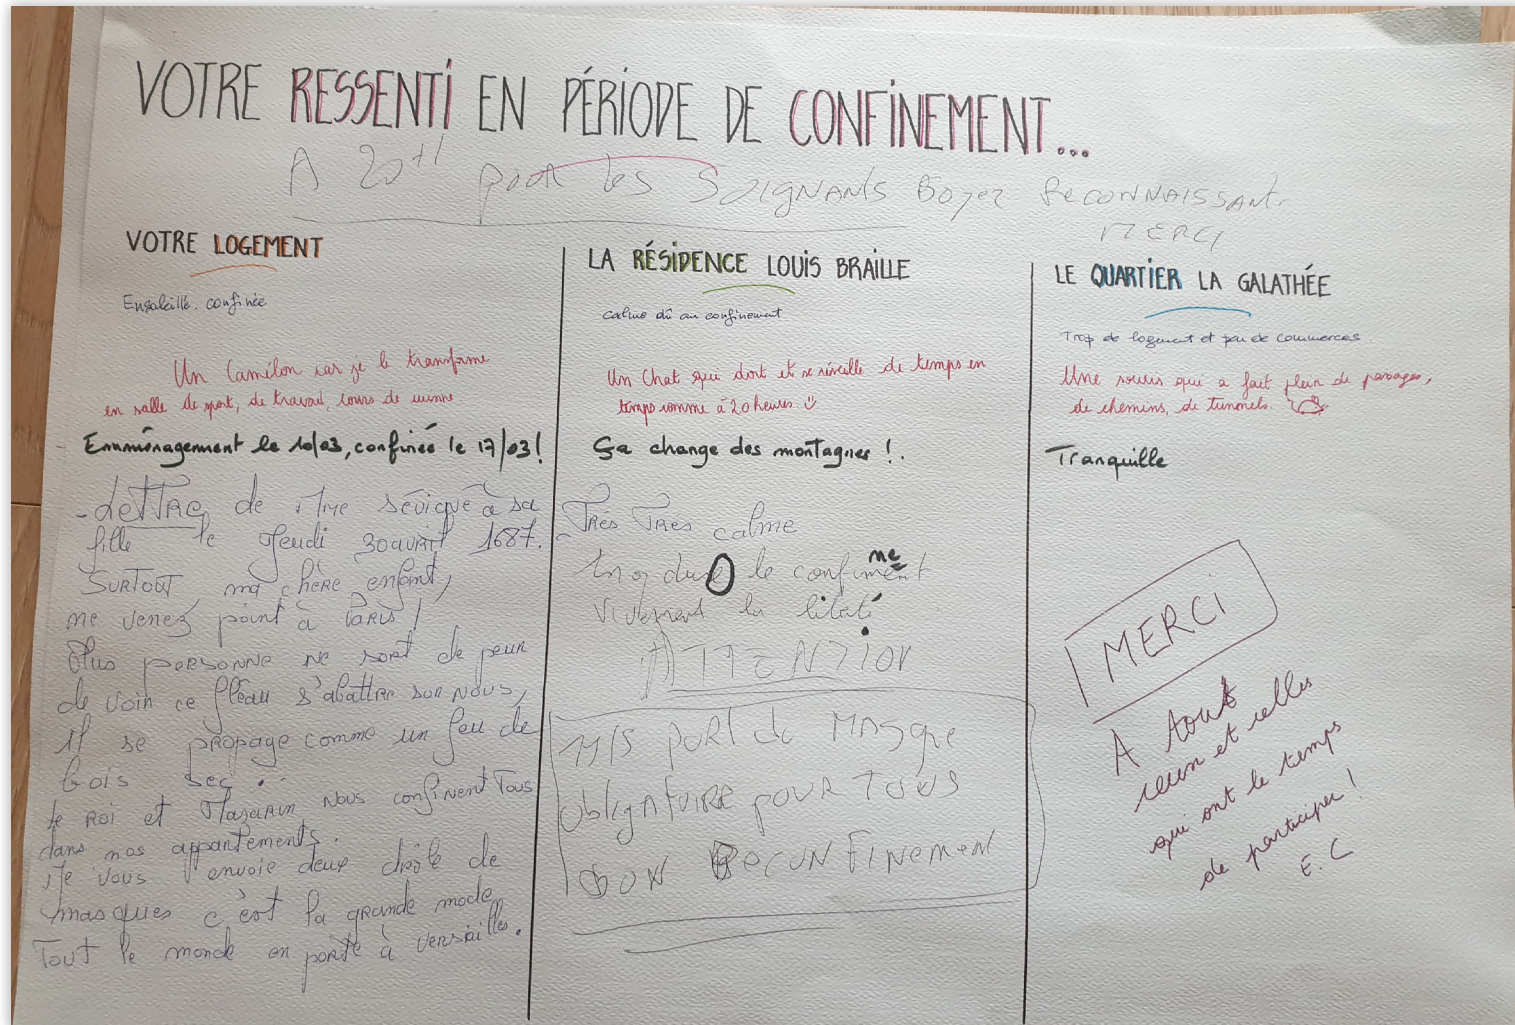 VOTRE RESSENTI EN PÉRIODE DE CONFINEMENT...
A 20H pour les SOIGNANTS Soyez RECONNAISSANT.
MERCI
VOTRE LOGEMENT
Ensoleillé. confinée
Un Camélon car je le transforme
en salle de sport, de travail, cours de cuisine
Emménagement le 10/03, confinée le 17/03!
- LETTRE de Mme Sévigné à sa
fille le Jeudi 30 avril 1687.
SURTOUT, ma chère enfant,
ne venez point à PARIS!
Plus PERSONNE ne sort de peur
de voir ce fléau s'abattre sur NOUS,
il se propage comme un feu de
bois sec.
Le ROI et Mazarin NOUS confinent Tous
dans nos appartements.
Je vous envoie deux drôle de
masques c'est la grande mode
Tout le monde en porte à Versailles.
LA RÉSIDENCE LOUIS BRAILLE
Calme dû au confinement
Un Chat qui dort et se réveille de temps en
temps comme à 20 heures.
Ça change des montagnes !.
Très Très calme
Trop dure le confinement
vivement la liberté
ATTENTION
11/5 port du Masque
obligatoire pour Tous
BON DECONFINEMENT
LE QUARTIER LA GALATHÉE
Trop de logement et peu de commerces
Une souris qui a fait plein de passages,
de chemins, de tunnels.
Tranquille
MERCI
A tout
ceux et celles
qui ont le temps
de participer !
E. C